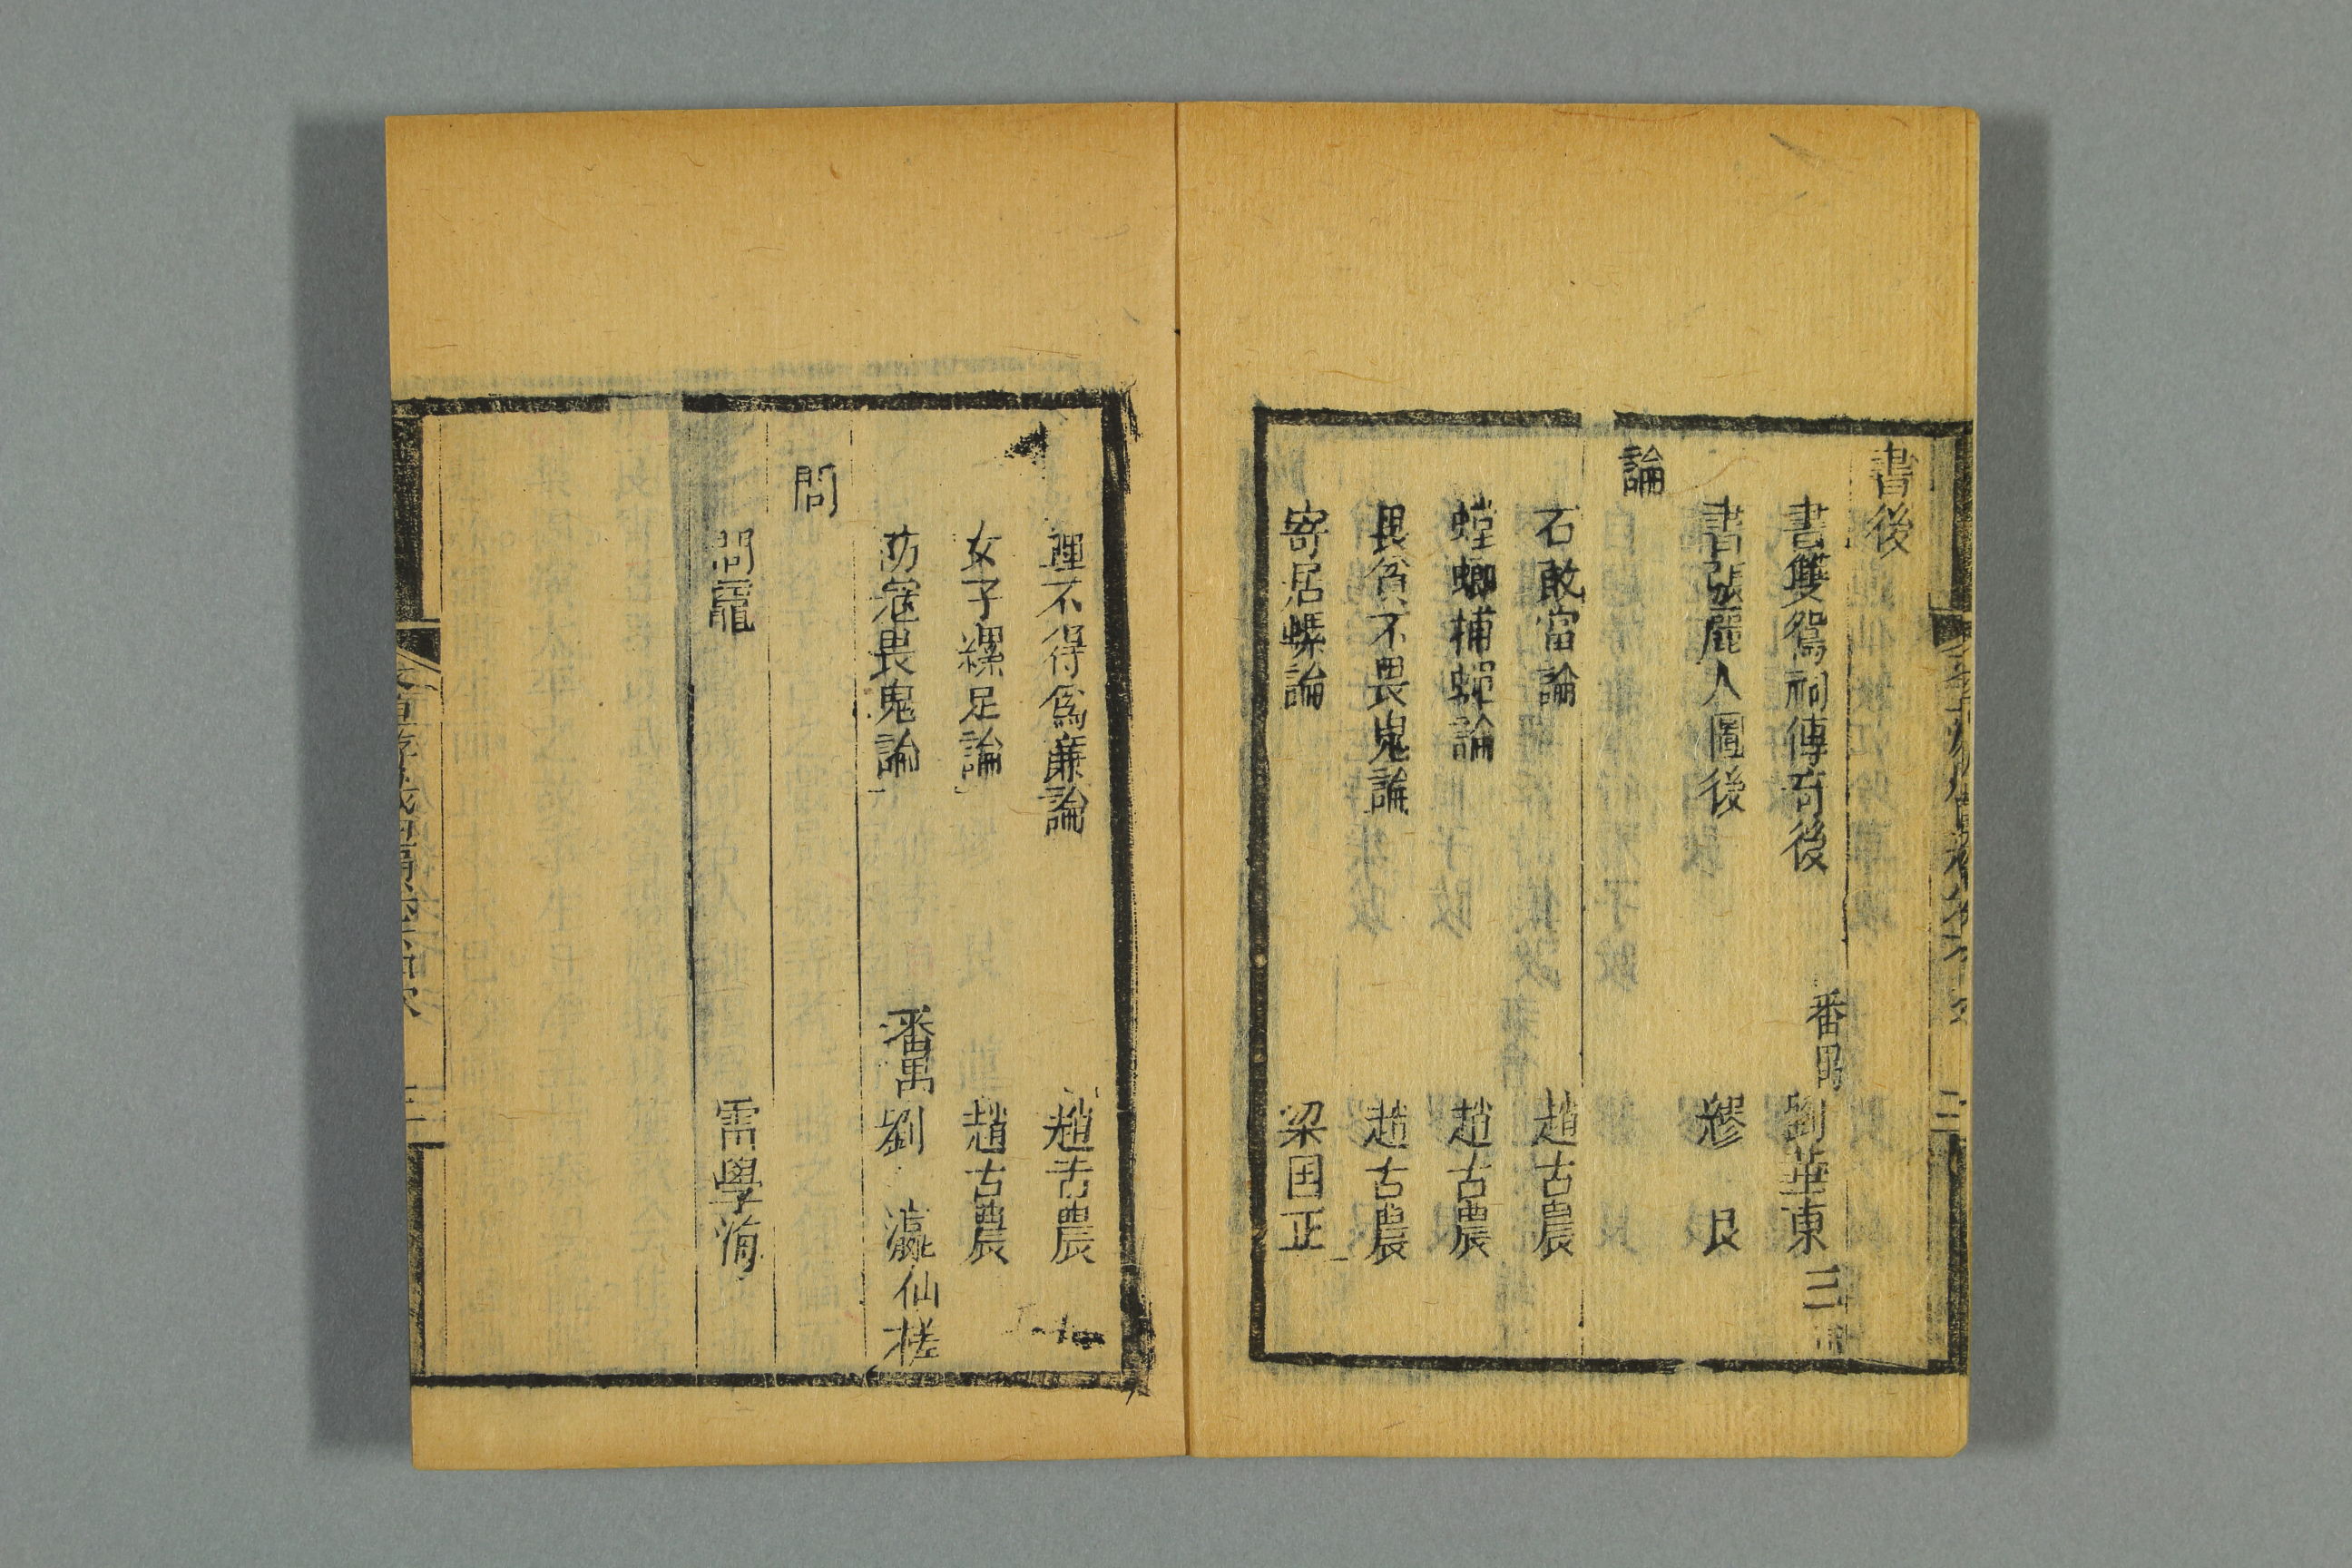 書後
書雙鴛祠傳奇後 番禺 劉華東 三
書張麗人圖後 繆 艮
論
石敢當論 趙古農
螳螂捕蟬論 趙古農
畏貧不畏鬼論 趙古農
寄居螺論 梁国正
理不得爲廉論 趙古農
女子纏足論 趙古農
防寇畏鬼論 番禺 劉 瀛 仙槎
問
問